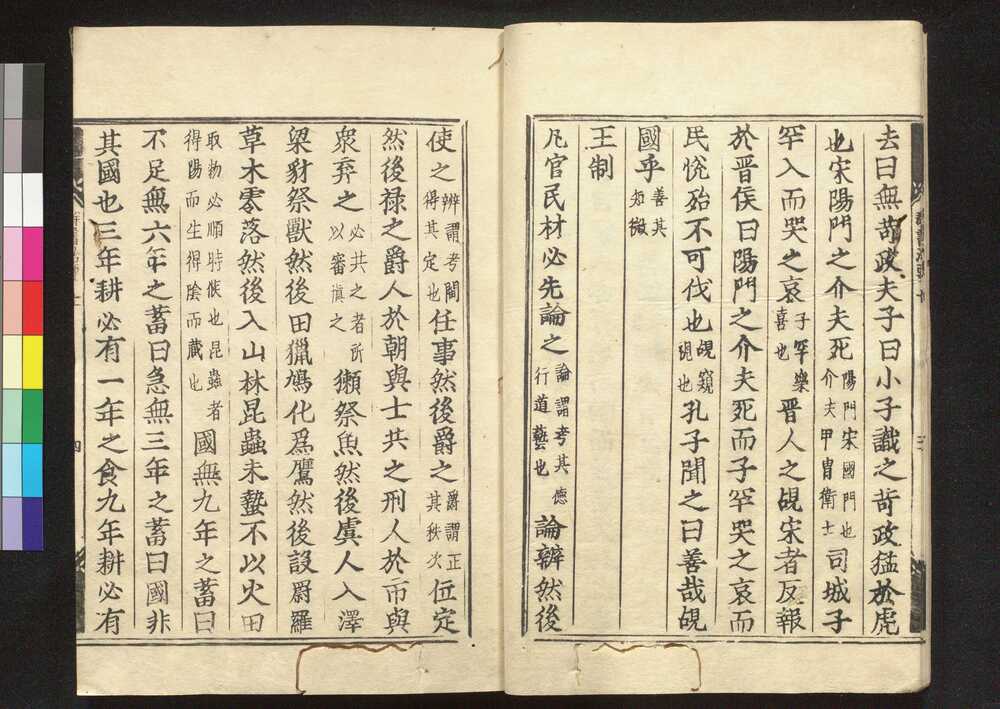 去曰無苛政夫子曰小子識之苛政猛於虎
也宋陽門之介夫死陽門宋國門也介夫甲冑衛士司城子
罕入而哭之哀子罕樂喜也晉人之覘宋者反報
於晉侯曰陽門之介夫死而子罕哭之哀而
民悅殆不可伐也覘窺視也孔子聞之曰善哉覘
國乎善其知微
王制
凡官民材必先論之論謂考其德行道藝也論辨然後
使之辨謂考問得其定也任事然後爵之爵謂正其秩次位定
然後禄之爵人於朝與士共之刑人於市與
衆弃之必共之者所以審慎之獺祭魚然後虞人入澤
梁豺祭獸然後田獵鳩化爲鷹然後設罻羅
草木零落然後入山林昆蟲未蟄不以火田
取物必順時候也昆蟲者得陽而生得陰而藏也國無九年之蓄曰
不足無六年之蓄曰急無三年之蓄曰國非
其國也三年耕必有一年之食九年耕必有
四